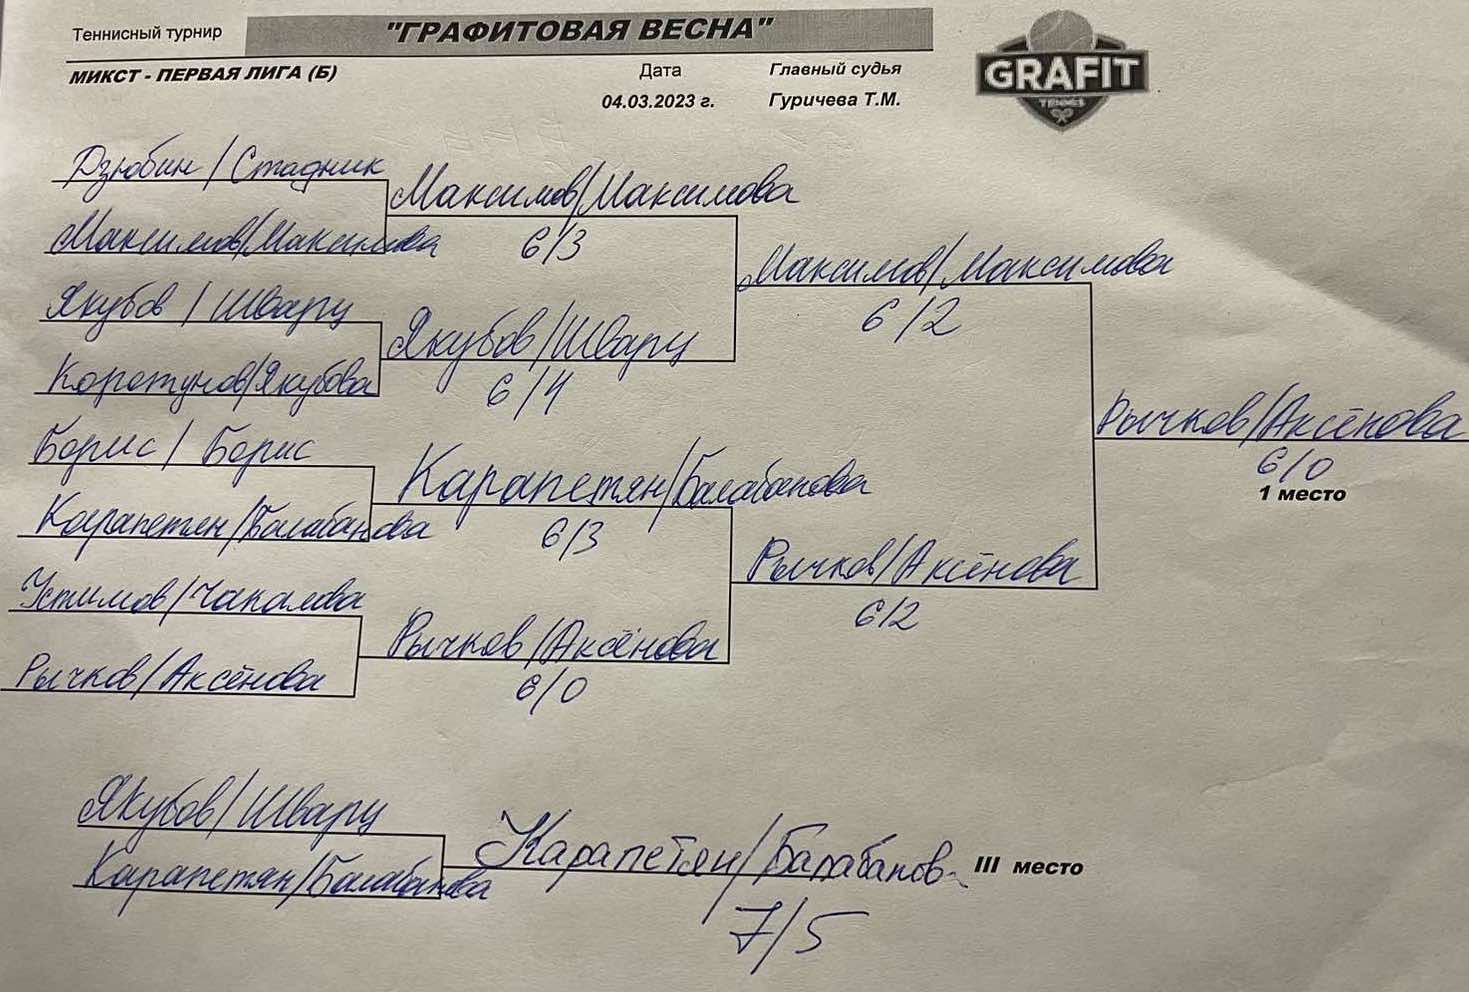 Теннисный турнир "ГРАФИТОВАЯ ВЕСНА"
МИКСТ - ПЕРВАЯ ЛИГА (Б)
Дата
Главный судья
04.03.2023 г.
Гуричева Т.М.
GRAFIT
TENNIS
Дзюбин / Стадник
Максимов/Максимова
Максимов/Максимова
6/3
Якубов / Шварц
Коротунов/Якубова
Якубов/Шварц
6/4
Максимов/Максимова
6/2
Борис / Борис
Карапетян/Балабанова
Карапетян/Балабанова
6/3
Устимов/Чакалова
Рычков/Аксёнова
Рычков/Аксёнова
6/0
Рычков/Аксёнова
6/2
Рычков/Аксёнова
6/0
1 место
Якубов/Шварц
Карапетян/Балабанова
Карапетян/Балабанов
III место
7/5